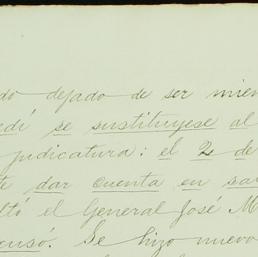 do dejado de ser miem
edí se sustituyese al
judicatura: el 2 de
te dar cuenta en sa
ltó el General José M
ensó. Se hizo nuevo